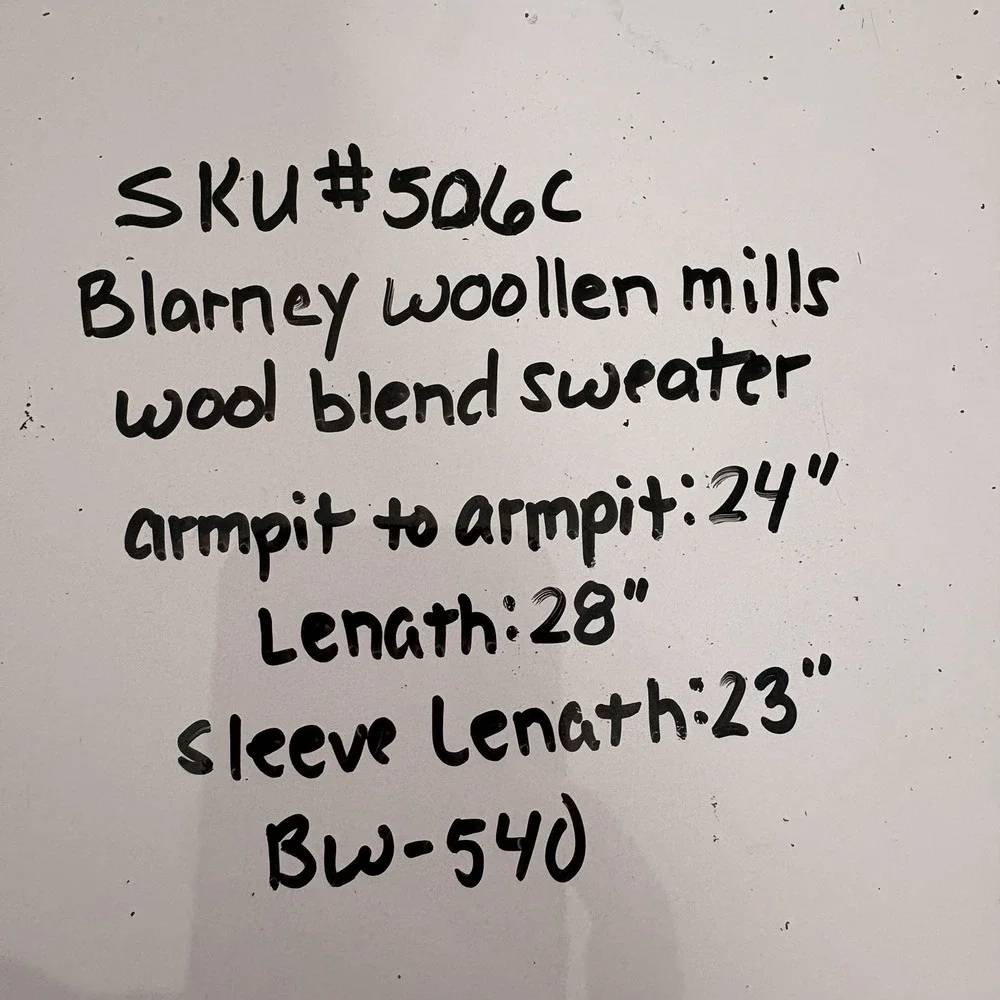 SKU#506C
Blarney woollen mills
wool blend sweater
armpit to armpit: 24"
Lenath: 28"
sleeve Lenath: 23"
BW-540